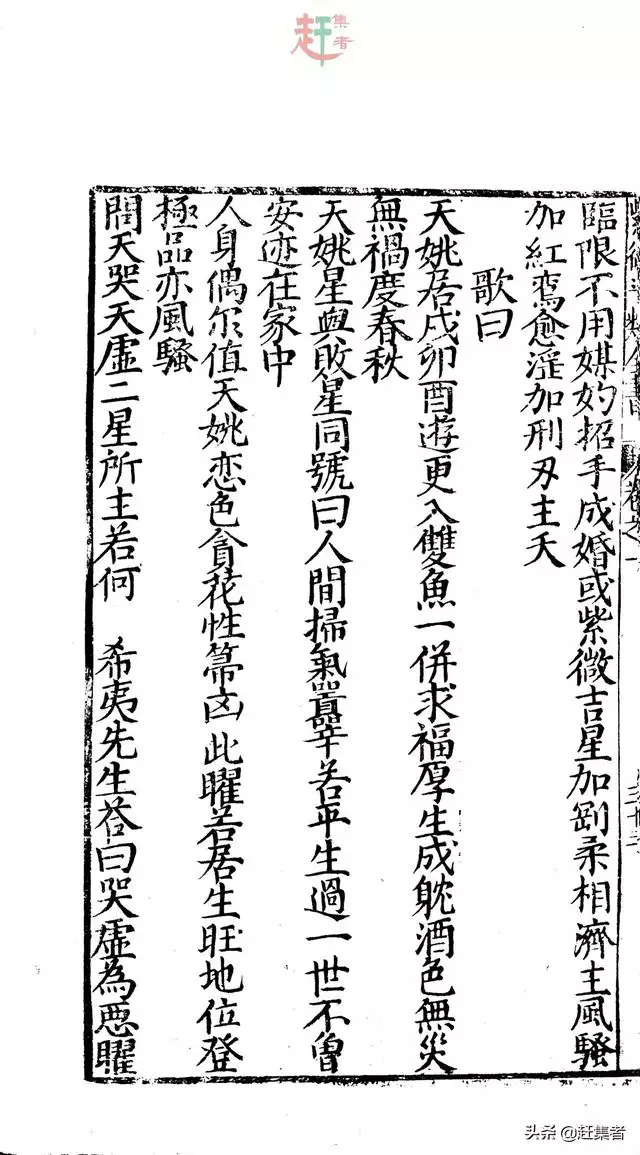 赶集者
臨限不用媒妁招手成婚或紫微吉星加剛柔相濟主風騷
加紅鸞愈淫加刑刃主夭
歌曰
天姚居戌卯酉遊更入雙魚一併求福厚生成躭酒色無災
無禍度春秋
天姚星與敗星同號曰人間掃氣囂辛苦平生過一世不曾
安迹在家中
人身偶尔值天姚恋色貪花性帶凶此曜若居生旺地位登
極品亦風騷
問天哭天虛二星所主若何 希夷先生荅曰哭虛為惡曜
头条 @赶集者